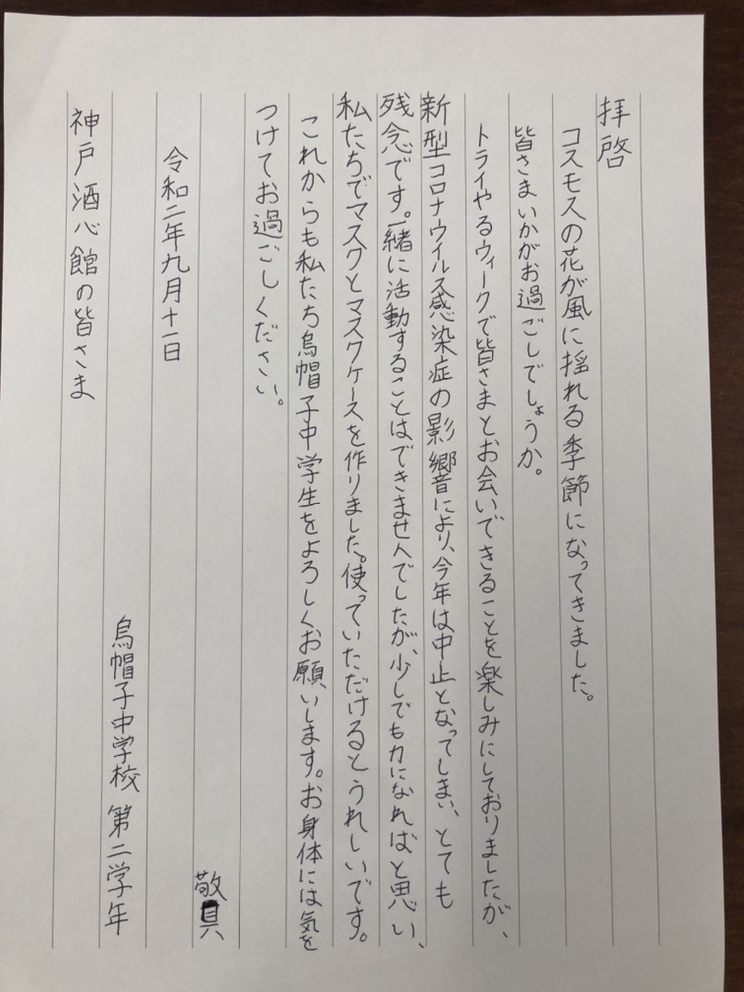 拝啓
コスモスの花が風に揺れる季節になってきました。
皆さまいかがお過ごしでしょうか。
トライやるウィークで皆さまとお会いできることを楽しみにしておりましたが、
新型コロナウイルス感染症の影響により、今年は中止となってしまい、とても
残念です。一緒に活動することはできませんでしたが、少しでも力になればと思い、
私たちでマスクとマスクケースを作りました。使っていただけるとうれしいです。
これからも私たち烏帽子中学生をよろしくお願いします。お身体には気を
つけてお過ごしください。
敬具
令和二年九月十一日
烏帽子中学校 第二学年
神戸酒心館の皆さま